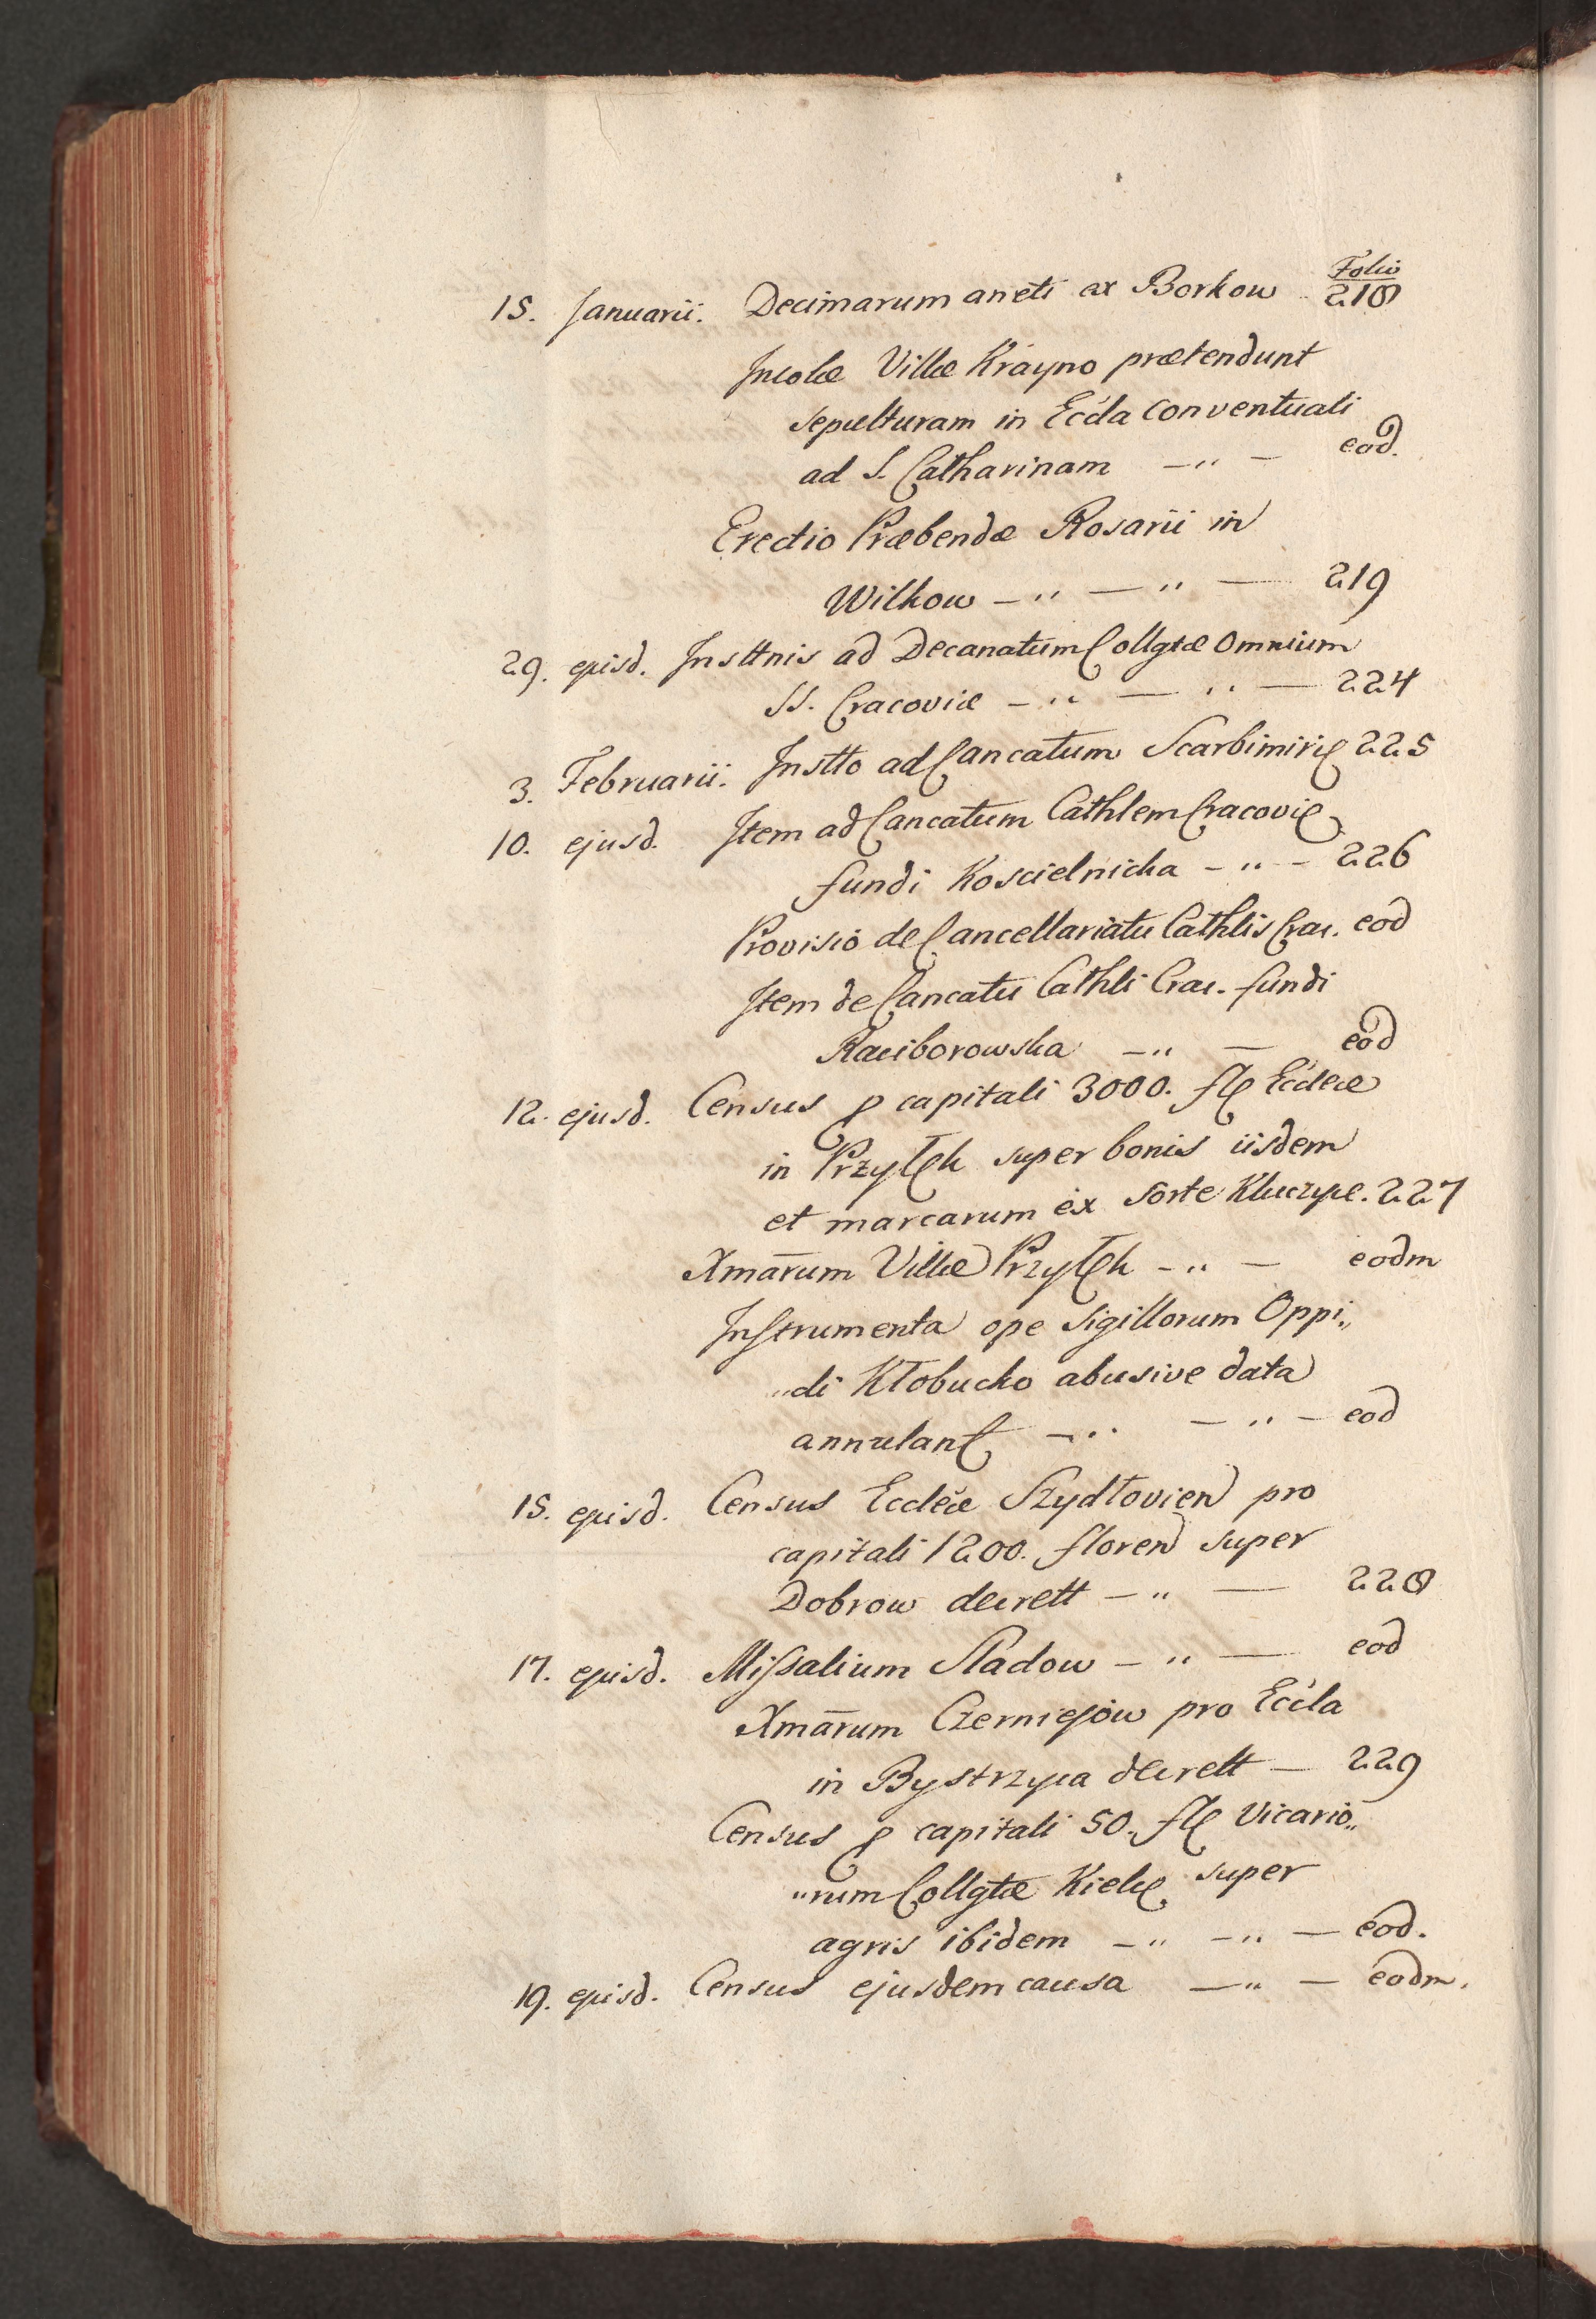 Folio
15. Januarii. Decimarum aneti ex Borkow 218
Incolæ Villæ Krayno prætendunt
sepulturam in Eccla conventuali
ad S. Catharinam —〃— eod.
Erectio Præbendæ Rosarii in
Wilkow —〃—〃— 219
29. ejusd. Insttnis ad Decanatum Collgtæ Omnium
SS. Cracoviæ —〃—〃— 224
3. Februarii. Instto ad Cancatum Scarbimirię 225
10. ejusd. Item ad Cancatum Cathlem Cracovię
fundi Koscielnicka —〃— 226
Provisio de Cancellariatu Cathlis Crac. eod
Item de Cancatu Cathli Crac. fundi
Raciborowska —〃— eod
12. ejusd. Census p capitali 3000. fl Eccleæ
in Przyłęk super bonis iisdem
et marcarum ex Sorte Kluczyce. 227
Xmārum Villæ Przyłęk —〃— eodm
Instrumenta ope Sigillorum Oppi〃
〃di Kłobucko abusive data
annulant —〃 —〃— eod
15. ejusd. Census Eccleæ Szydłovien pro
capitali 1200. floren super
Dobrow decrett —〃— 228
17. ejusd. Missalium Sładow —〃— eod
Xmārum Czerniejow pro Eccla
in Bystrzyca decrett — 229
Census p capitali 50. fl Vicario〃
〃rum Collgtæ Kielc super
agris ibidem —〃 —〃— eod.
19. ejusd. Census ejusdem causa —〃— eodm.